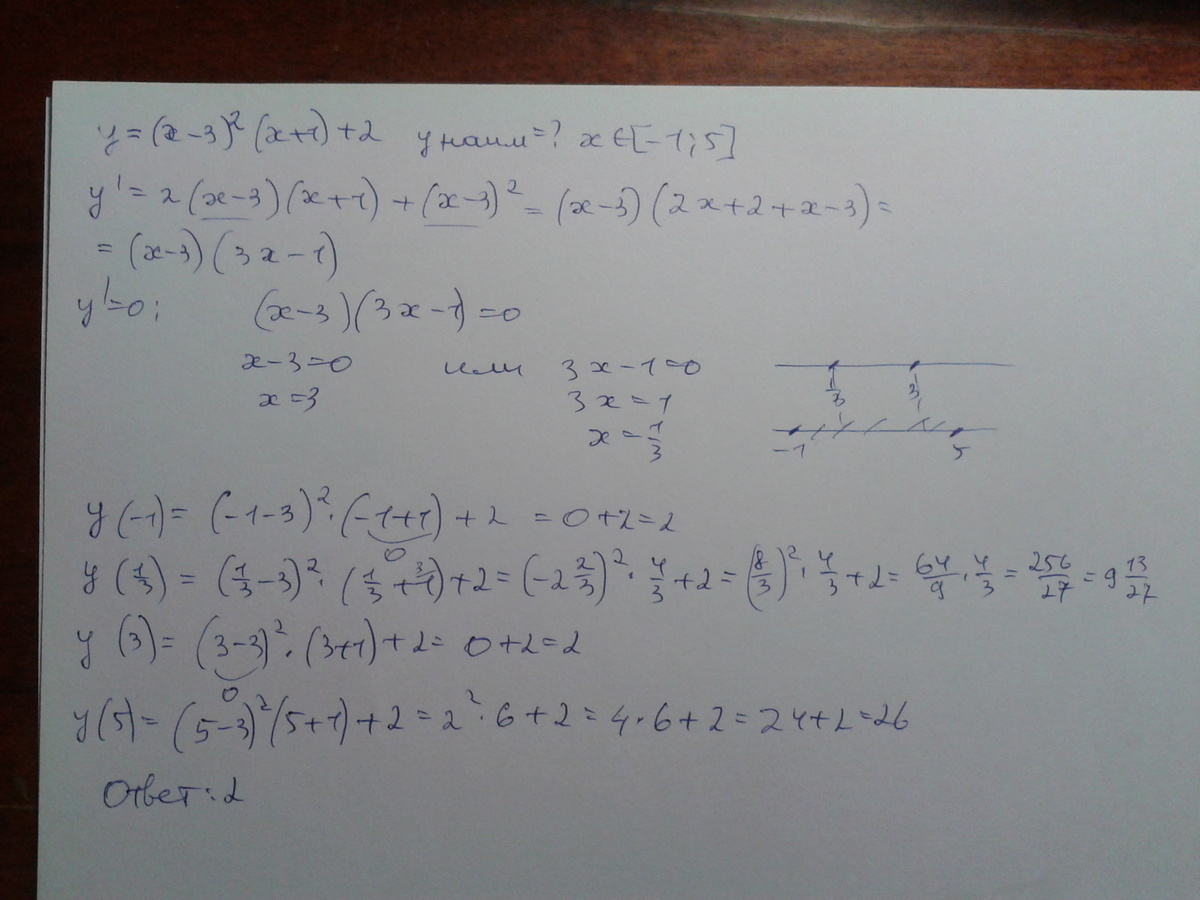 y = (x-3)² (x+1) + 2 y наим = ? x ∈ [-1; 5]
y' = 2 (x-3) (x+1) + (x-3)² = (x-3) (2x+2+x-3) =
= (x-3) (3x-1)
y' = 0; (x-3) (3x-1) = 0
x-3=0 или 3x-1=0
x=3 3x=1
x = 1/3
1/3 3
-1 5
y(-1) = (-1-3)² · (-1+1) + 2 = 0+2=2
0
y(1/3) = (1/3 - 3)² · (1/3 + 1) + 2 = (-2 2/3)² · 4/3 + 2 = (8/3)² · 4/3 + 2 = 64/9 · 4/3 = 256/27 = 9 13/27
y(3) = (3-3)² · (3+1) + 2 = 0+2=2
0
y(5) = (5-3)² (5+1) + 2 = 2² · 6 + 2 = 4 · 6 + 2 = 24+2=26
Ответ: 2